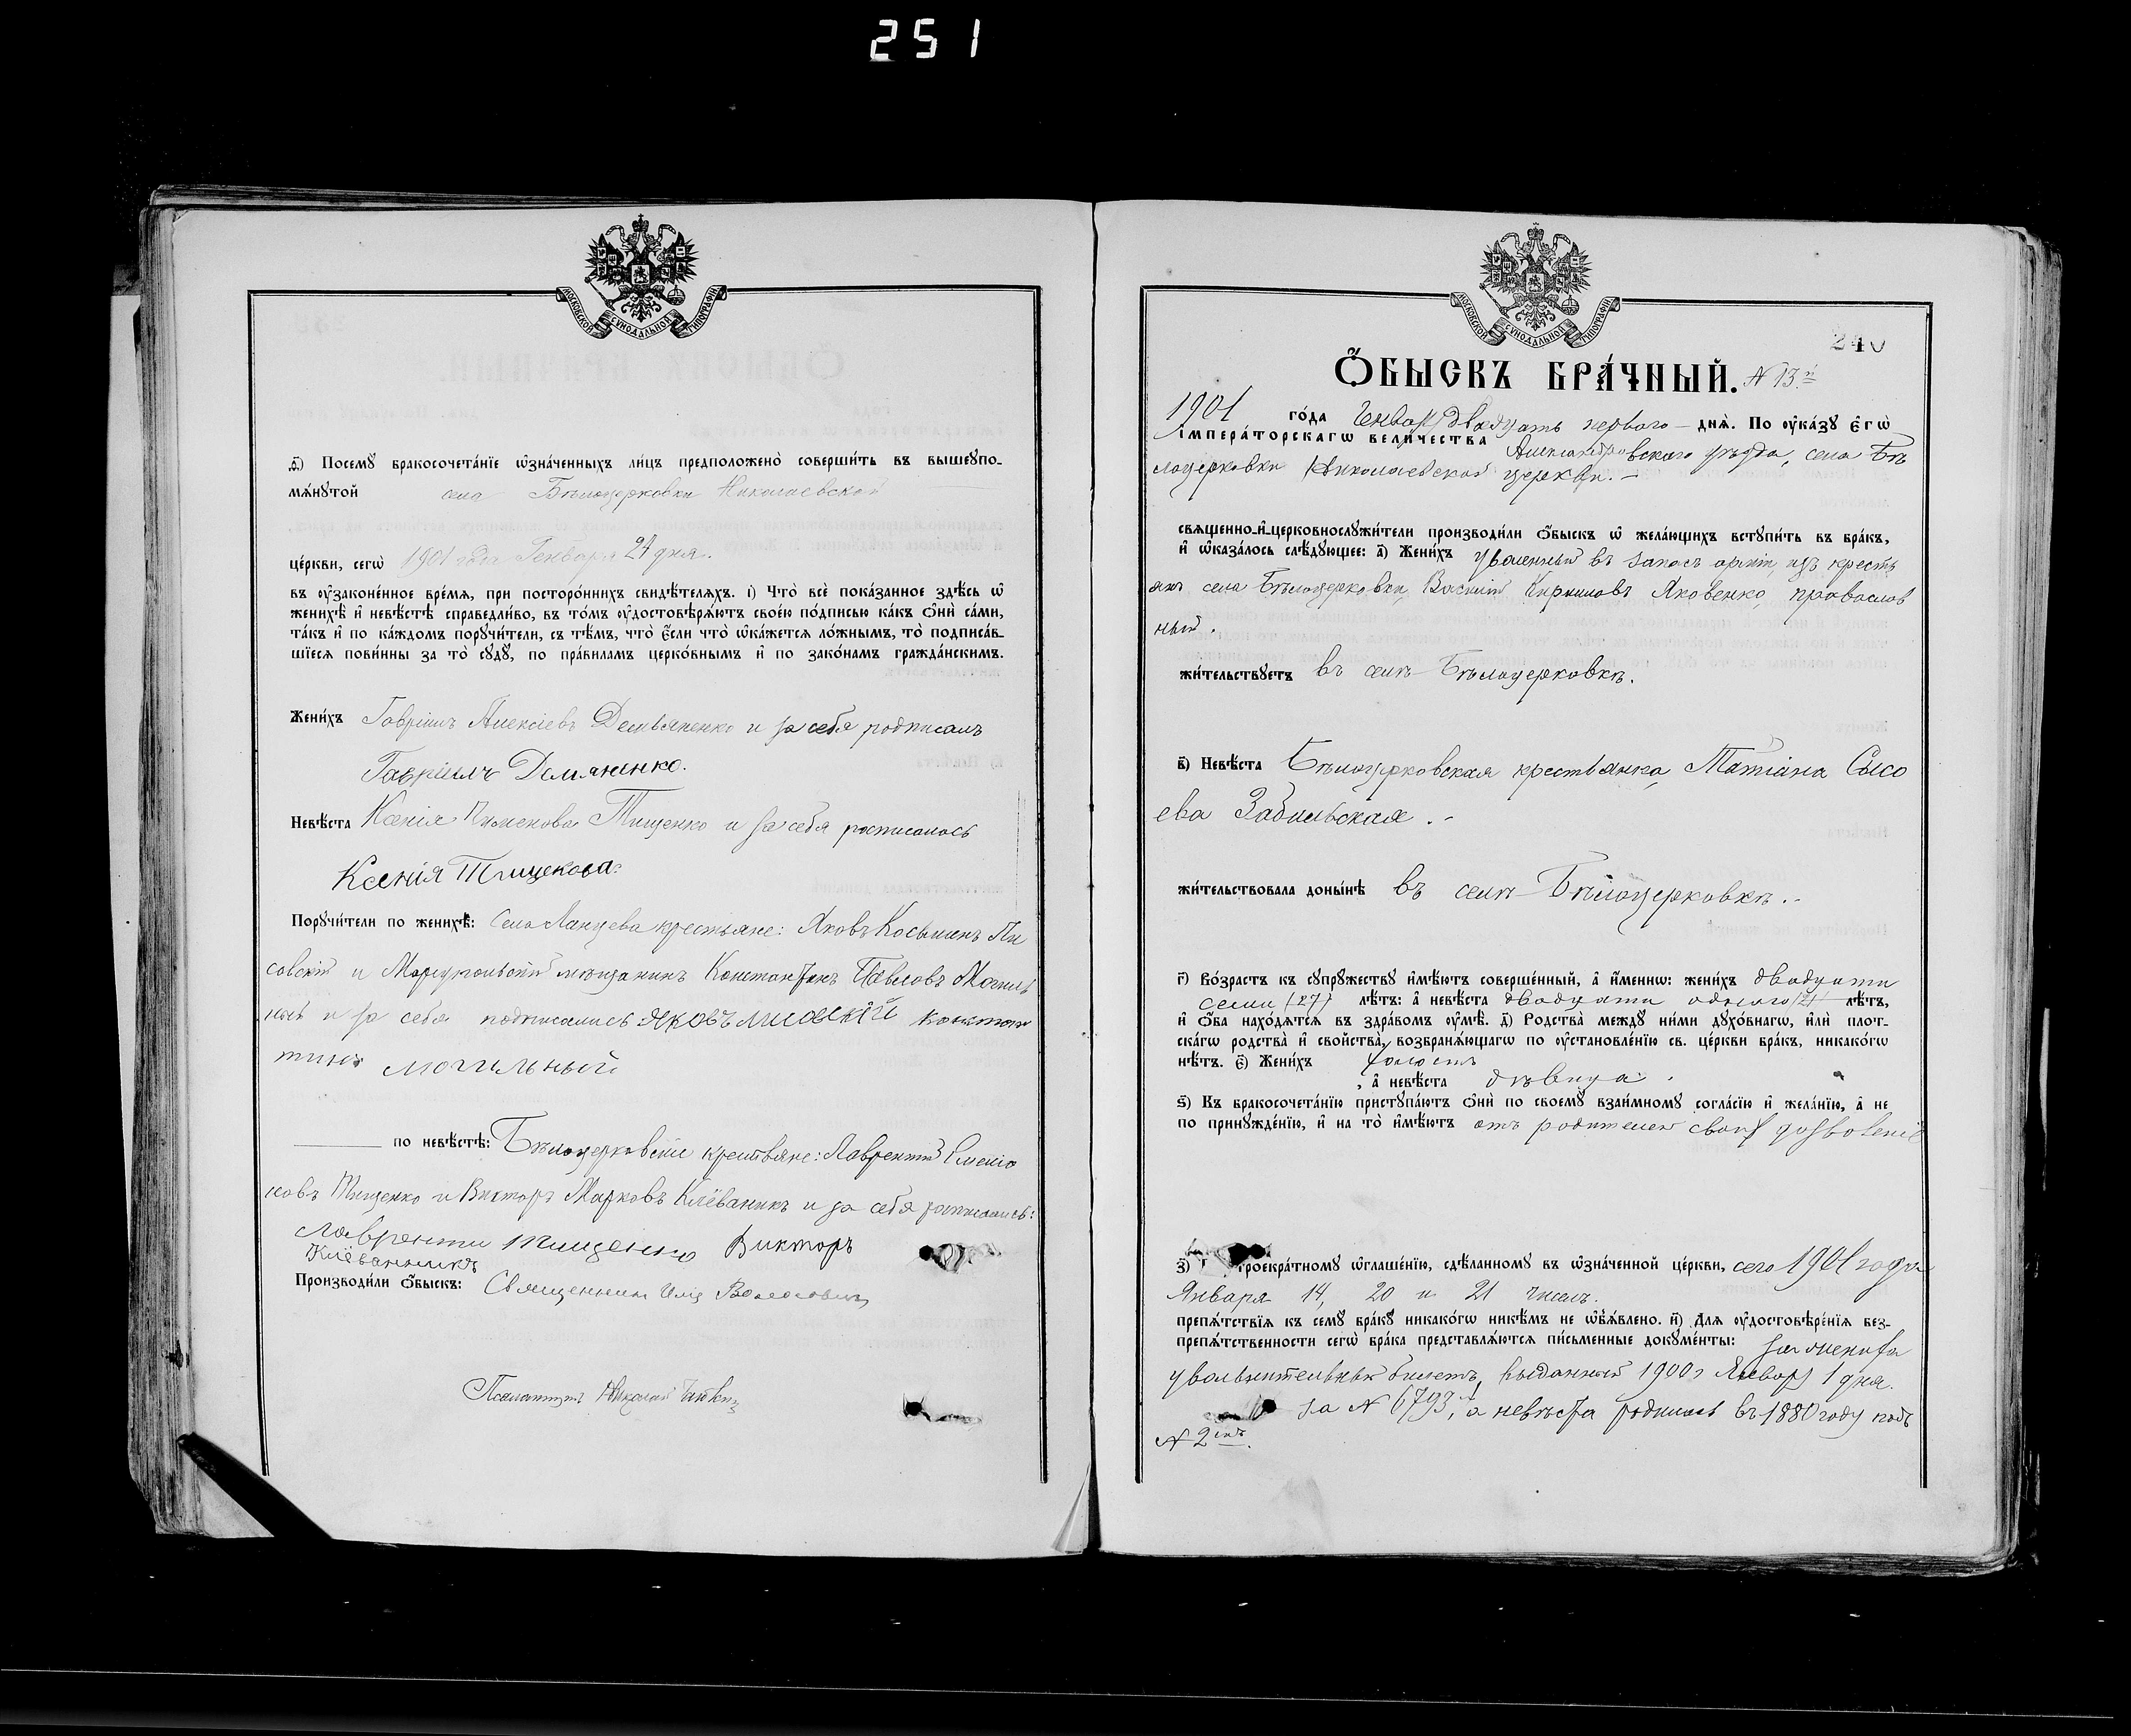 251
МОСКОВСКОЙ СУНОДАЛЬНОЙ ТИПОГРАФІИ
ѳ҃) Посемꙋ бракосочета́нїе ѡ҆зна́ченныхъ ли́цъ предположено̀ соверши́ть въ вышеꙋпо-
мѧ́нꙋтой села Бѣлоцерковки Николаевской
це́ркви, сегѡ̀ 1901 года Генваря 24 дня.
въ ᲂу҆зако́ненное вре́мѧ, при посторо́ннихъ свидѣ́телѧхъ. і҃) Что̀ всѐ пока́занное здѣ́сь ѡ҆
женихѣ̀ и҆ невѣ́стѣ справедли́во, въ то́мъ ᲂу҆достовѣрѧ́ютъ свое́ю по́дписью ка́къ ѻ҆нѝ са́ми,
та́къ и҆ по ка́ждомъ порꙋчи́тели, съ тѣ́мъ, что̀ є҆́сли что̀ ѡ҆ка́жетсѧ ло́жнымъ, то̀ подписа́в-
шїесѧ пови́нны за то̀ сꙋдꙋ̀, по пра́виламъ церко́внымъ и҆ по зако́намъ гражда́нскимъ.
Жени́хъ Гавріилъ Алексіевъ Демьяненко и за себя подписалъ
Гавріилъ Демяненко.
Невѣ́ста Ксенія Пименова Тищенко и за себя росписалась
Ксенія Тищекова.
Порꙋчи́тели по женихѣ̀: Села Ланцева крестьяне: Яковъ Косьминъ Ли
совскій и Маріупольскій мѣщанинъ Константинъ Павловъ Могиль
ный и за себя подписались Яковъ Лисовскій Констан
тинъ Могильный
по невѣ́стѣ: Бѣлоцерковскіе крестьяне: Лаврентій
Тищенко и Викторъ Марковъ Клёваникъ и за себя росписались:
Лаврентий Тищенко Викторъ
Клёванникъ
Производи́ли ѻ҆́быскъ: Священникъ
Псаломщикъ Николай
МОСКОВСКОЙ СУНОДАЛЬНОЙ ТИПОГРАФІИ
240
Ѻ҆́БЫСКЪ БРА́ЧНЫЙ. № 13й
1901 го́да Генваря двадцать перваго дня̀. По ᲂу҆ка́зꙋ є҆гѡ̀
і҆мпера́торскагѡ вели́чества Александровскаго уѣзда, села Бѣ
лоцерковки Николаевской церкви.
свѧще́нно-и҆-церковнослꙋжи́тели производи́ли ѻ҆́быскъ ѡ҆ жела́ющихъ встꙋпи́ть въ бра́къ,
и҆ ѡ҆каза́лось слѣ́дꙋющее: а҃) Жени́хъ уволенный въ запасъ арміи, изъ кресть
янъ села Бѣлоцерковки, Василій Кириловъ Яковенко, православ
ный.
жи́тельствꙋетъ въ селѣ Бѣлоцерковкѣ.
в҃) Невѣ́ста Бѣлоцерковская крестьянка, Татіана Сысо
ева Забильская.
жи́тельствовала доны́нѣ въ селѣ Бѣлоцерковкѣ.
г҃) Во́зрастъ къ сꙋпрꙋ́жествꙋ и҆мѣ́ютъ соверше́нный, а҆ и҆́менно: жени́хъ двадцати
семи (27) лѣ́тъ: а҆ невѣ́ста двадцати одного (21) лѣ́тъ,
и҆ ѻ҆́ба нахо́дѧтсѧ въ здра́вомъ ᲂу҆мѣ̀. д҃) Родства̀ междꙋ̀ ни́ми дꙋхо́внагѡ, и҆лѝ плот-
ска́гѡ родства̀ и҆ сво́йства, возбранѧ́ющагѡ по ᲂу҆становле́нїю св. це́ркви бра́къ, никако́гѡ
нѣ́тъ. є҃) Жени́хъ холостъ
, а҆ невѣ́ста дѣвица.
ѕ҃) Къ бракосочета́нїю пристꙋпа́ютъ ѻ҆нѝ по своемꙋ̀ взаи́мномꙋ согла́сїю и҆ жела́нїю, а҆ не
по принꙋжде́нїю, и҆ на то̀ и҆мѣ́ютъ отъ родителей своих дозволеніе
з҃) троекра́тномꙋ ѡ҆глаше́нїю, сдѣ́ланномꙋ въ ѡ҆зна́ченной це́ркви, сего 1901 года
Января 14, 20 и 21 чиселъ.
препѧ́тствїѧ къ семꙋ̀ бра́кꙋ никако́гѡ никѣ́мъ не ѡ҆б̾ѧ́влено. и҃) Длѧ ᲂу҆достовѣре́нїѧ без-
препѧ́тственности сегѡ̀ бра́ка представлѧ́ютсѧ пи́сьменные докꙋме́нты: на жениха
увольнительный билетъ, выданный 1900 г Январ 1 дня.
за № 6793, а невѣста родилась въ 1880 году подъ
№ 2мъ.